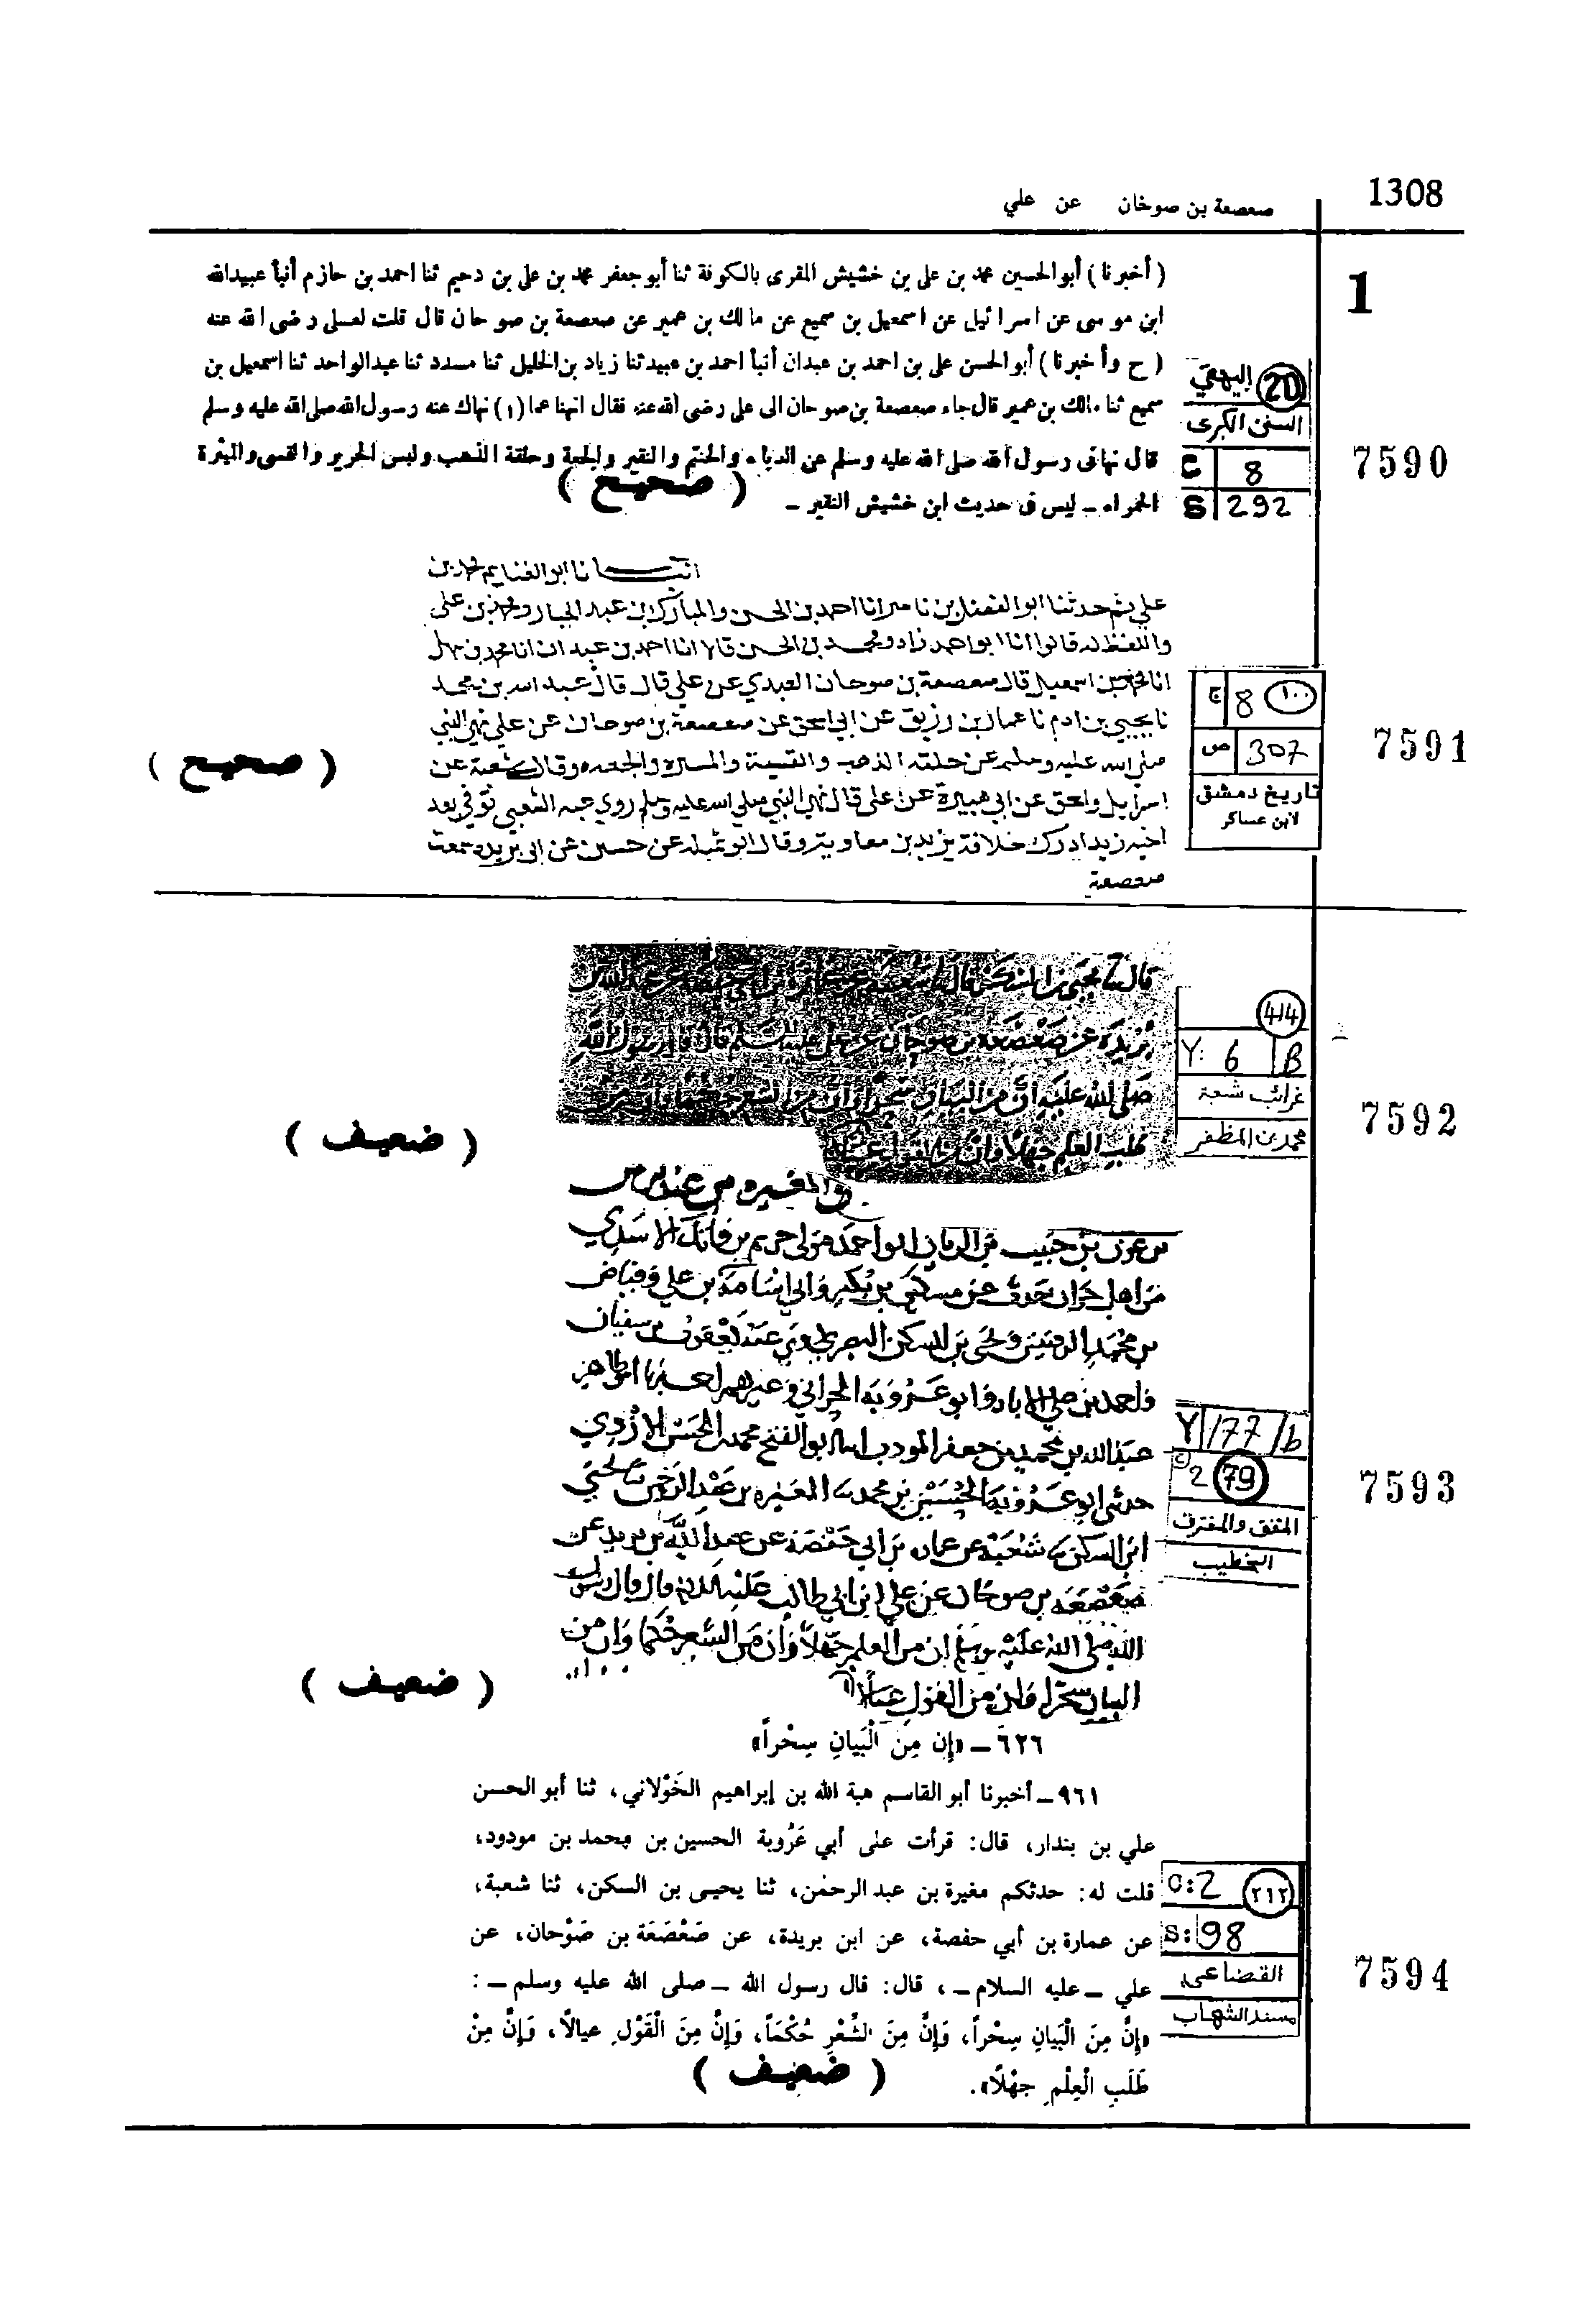 1308
صعصعة بن صوخان عن علي
1
( أخبرنا ) أبو الحسين محمد بن على بن خشيش المقرى بالكوفة ثنا أبو جعفر محمد بن على بن دحيم ثنا احمد بن حازم أنبأ عبيدالله
ابن موسى عن اسرائيل عن اسمعيل بن سميع عن مالك بن عمير عن صعصعة بن صوحان قال قلت لعلى رضى الله عنه
( ح وأخبرنا ) أبو الحسن على بن احمد بن عبدان أنبأ احمد بن عبيد ثنا زياد بن الخليل ثنا مسدد ثنا عبدالواحد ثنا اسمعيل بن
سميع ثنا مالك بن عمير قال جاء صعصعة بن صوحان الى على رضى الله عنه فقال انهنا عما (١) نهاك عنه رسول الله صلى الله عليه وسلم
قال نهانى رسول الله صلى الله عليه وسلم عن الدباء والحنتم والنقير والجعة وحلقة الذهب ولبس الحرير والقسى والميثرة
الحمراء ـ ليس فى حديث ابن خشيش النقير ـ
( صحيح )
20 البيهقي
السنن الكبرى
C 8
S 292
7590
انبأنا ابو الغنايم محمد بن
علي ثم حدثنا ابو الفضل بن ناصر انا احمد بن الحسن والمبارك بن عبد الجبار ومحمد بن علي
واللفظ له قالوا انا ابو احمد زاد ومحمد بن الحسن قالا انا احمد بن عبدان انا محمد بن سهل
انا محمد بن اسمعيل قال صعصعة بن صوحان العبدي عن علي قال قال عبد الله بن محمد
نا يحيى بن ادم نا عمار بن رزيق عن ابي اسحق عن صعصعة بن صوحان عن علي نهى النبي
صلى الله عليه وسلم عن حلقة الذهب والقسية والميسرة والجعه وقال شعبة عن
اسرايل واسحق عن ابي هبيرة عن علي قال نهى النبي صلى الله عليه وسلم روي عنه الشعبي توفي بعد
اخيه زيد ادرك خلافة يزيد بن معاوية وقال ابو تميلة عن حسين عن ابن بريدة سمعت
صعصعة
( صحيح )
ج 8 ١٠٠
ص 307
تاريخ دمشق
لابن عساكر
7591
قال ثنا يحيى بن السكن قال ثنا شعبة عن عمارة بن أبي حفصة عن عبد الله بن
بريدة عن صعصعة بن صوحان عن علي عليه السلم قال قال رسول الله
صلى الله عليه ان من البيان سحرا وان من الشعر حكما وان من
طلب العلم جهلا وان من القول عيالا
( ضعيف )
414
Y: 6 B
غرائب شعبة
محمد بن المظفر
7592
والمغيره بن عبد الرحمن
بن عون بن حبيب بن الريان ابو احمد مولى خريم بن فاتك الاسدي
من اهل حران حدث عن مسكين بن بكير
بن محمد الرقيين ويحيى بن السكن البصري روى عنه يعقوب بن سفيان
واحمد بن علي الابار وابو عروبة الحراني وغيرهم اخبرنا ابو طاهر
عبد الله بن محمد بن جعفر المودب ابو الفتح محمد بن الحسن الازدي
حدثني ابو عروبة الحسين بن محمد المغيره بن عبد الرحمن يحيى
ابن السكن شعبة عن عمارة بن ابي حفصة عن عبد الله بن بريده عن
صعصعه بن صوحان عن علي ابن ابي طالب عليه السلام قال قال رسول
الله صلى الله عليه وسلم ان من العلم جهلا وان من الشعر حكما وان من
البيان سحرا وان من القول عيالا
( ضعيف )
Y 177 b
C 2 79
المتفق والمفترق
الخطيب
7593
٦٢٦ ـ «إِن مِنَ الْبَيانِ سِحْراً»
٩٦١ ـ أخبرنا أبو القاسم هبة الله بن إبراهيم الخَوْلاني، ثنا أبو الحسن
علي بن بندار، قال: قرأت على أبي عَرُوبة الحسين بن محمد بن مودود،
قلت له: حدثكم مغيرة بن عبد الرحمٰن، ثنا يحيى بن السكن، ثنا شعبة،
عن عمارة بن أبي حفصة، عن ابن بريدة، عن صَعْصَعَة بن صَوْحان، عن
علي ـ عليه السلام ـ، قال: قال رسول الله ـ صلى الله عليه وسلم ـ:
«إِنَّ مِنَ الْبَيانِ سِحْراً، وَإِنَّ مِنَ الشَّعْرِ حُكْمَاً، وَإِنَّ مِنَ الْقَوْلِ عيالًا، وَإِنَّ مِنْ
طَلَبِ الْعِلْمِ جهْلًا».
( ضعيف )
C:2 ٢١٢
S: 98
القضاعي
مسند الشهاب
7594